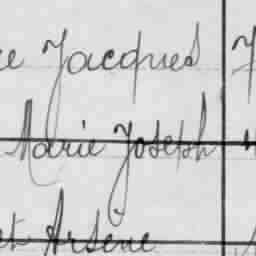 Jacques
Marie Joseph
et Arsène